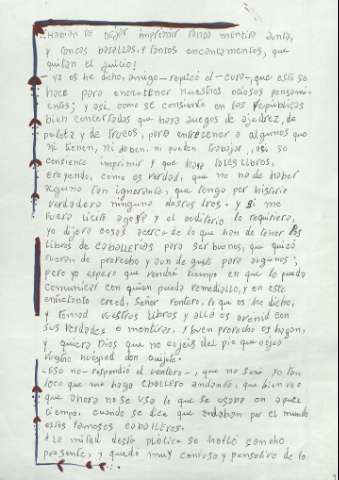 habían de dejar imprimir tanta mentira junta,
y tantas batallas y tantos encantamentos, que
quitan el juicio!
- ya os he dicho, amigo - replicó el - cura -, que esto se
hace para entretener nuestros ociosos pensami-
entos; y así, como se consiente en las repúblicas
bien concertadas que haya juegos de ajedrez, de
pelota y de trucos, para entretener a algunos que
ni tienen, ni deben, ni pueden trabajar, así se
consiente imprimir y que haya tales libros,
creyendo, como es verdad, que no ha de haber
alguno tan ignorante, que tenga por historia
verdadera ninguna destos libros. y si me
fuera licito agora y el auditorio lo requiriera,
yo dijera cosas acerca de lo que han de tener los
libros de caballerías para ser buenos, que quizá
fueran de provecho y aun de gusto para algunos;
pero yo espero que vendrá tiempo en que lo pueda
comunicar con quien pueda remediallo, y en este
entretanto creed, señor Ventero, lo que os he dicho,
y tomad vuestros libros y allá os avenid con
sus verdades o mentiras, y buen provecho os hagan,
y quiera Dios que no cojeis del pie que cojea
vuestro huésped don Quijote.
- Eso no - respondió el ventero -, que no seré yo tan
loco que me haga caballero andante, que bien veo
que ahora no se usa lo que se usaba en aquel
tiempo, cuando se dice que andaban por el mundo
estos famosos caballeros.
A la mitad desta plática se halló sancho
presente, y quedó muy confuso y pensativo de lo